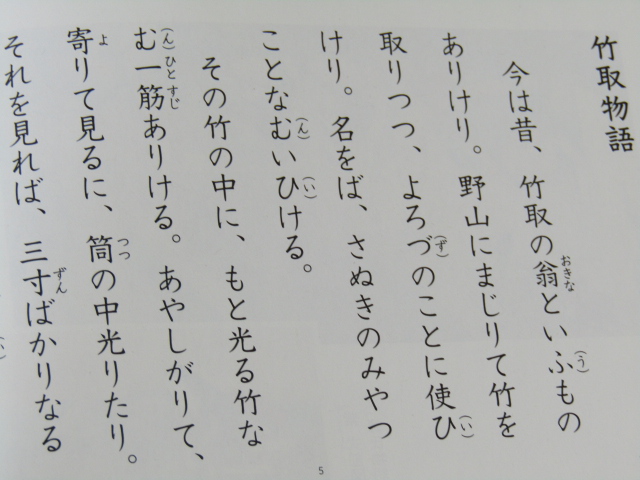 竹取物語
今は昔、竹取の翁といふもの
ありけり。野山にまじりて竹を
取りつつ、よろづのことに使ひ
けり。名をば、さぬきのみやつ
ことなむいひける。
その竹の中に、もと光る竹な
む一筋ありける。あやしがりて、
寄りて見るに、筒の中光りたり。
それを見れば、三寸ばかりなる
5